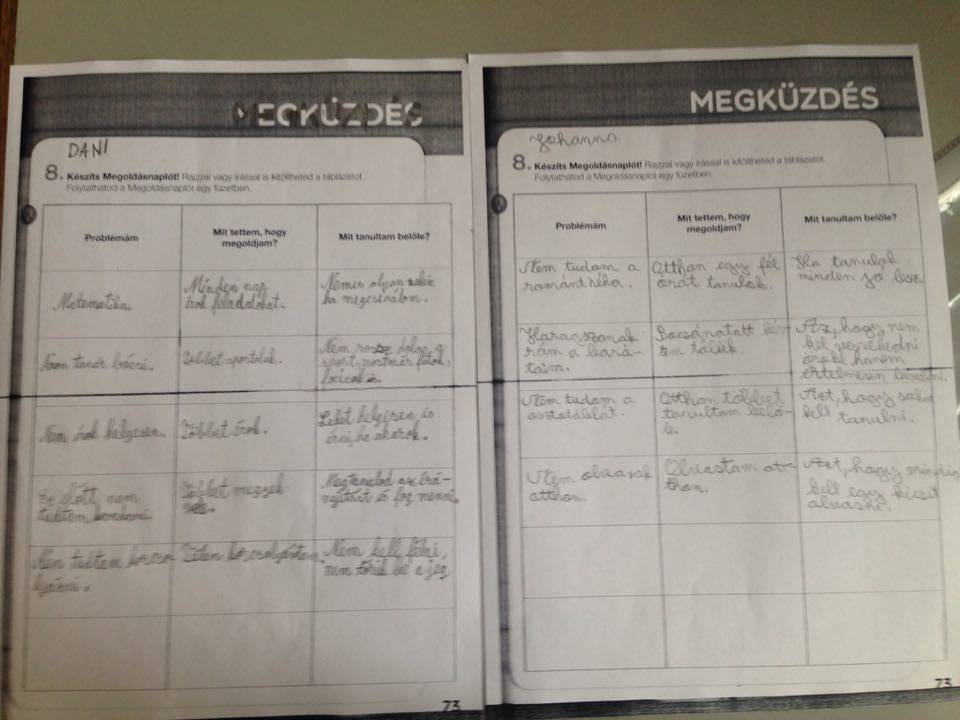 MEGKÜZDÉS
DANI
8. Készíts Megoldásnaplót! Rajzzal vagy írással is kitöltheted a táblázatot.
Folytathatod a Megoldásnaplót egy füzetben.
Problémám
Mit tettem, hogy
megoldjam?
Mit tanultam belőle?
Matematika.
Minden nap
írok feladatokat.
Nem is olyan nehéz
ha megcsinálom.
tanár bácsi.
Többet sportolok.
Nem rossz dolog a
sport, most már futok,
focizok is.
Nem írok helyesen.
Többet írok.
Lehet helyesen is
írni, ha akarok.
Ez előtt nem
tudtam
Többet megyek
Megtanulod az irá-
nyítást és fog menni.
Nem tudtam korcso
lyázni.
Télen korcsolyáztam.
Nem kell félni,
nem törik be a jég.
73
MEGKÜZDÉS
Johanna
8. Készíts Megoldásnaplót! Rajzzal vagy írással is kitöltheted a táblázatot.
Folytathatod a Megoldásnaplót egy füzetben.
Problémám
Mit tettem, hogy
megoldjam?
Mit tanultam belőle?
Nem tudom a
románt néha.
Otthon egy fél
órát tanulok.
Ha tanulok
minden jó lesz.
Haragszanak
rám a bará-
taim.
Bocsánatott kér-
tem tőlük.
Az, hogy nem
kel veszekedni
öröké hanem
értelmesen beszélni.
Nem tudom a
osztotáblát.
Otthon többet
tanultam belő-
le.
Azt, hogy sokat
kell tanulni.
Nem olvasok
otthon.
Olvastam ot-
thon.
Azt, hogy mindig
kell egy kicsit
olvasni.
73